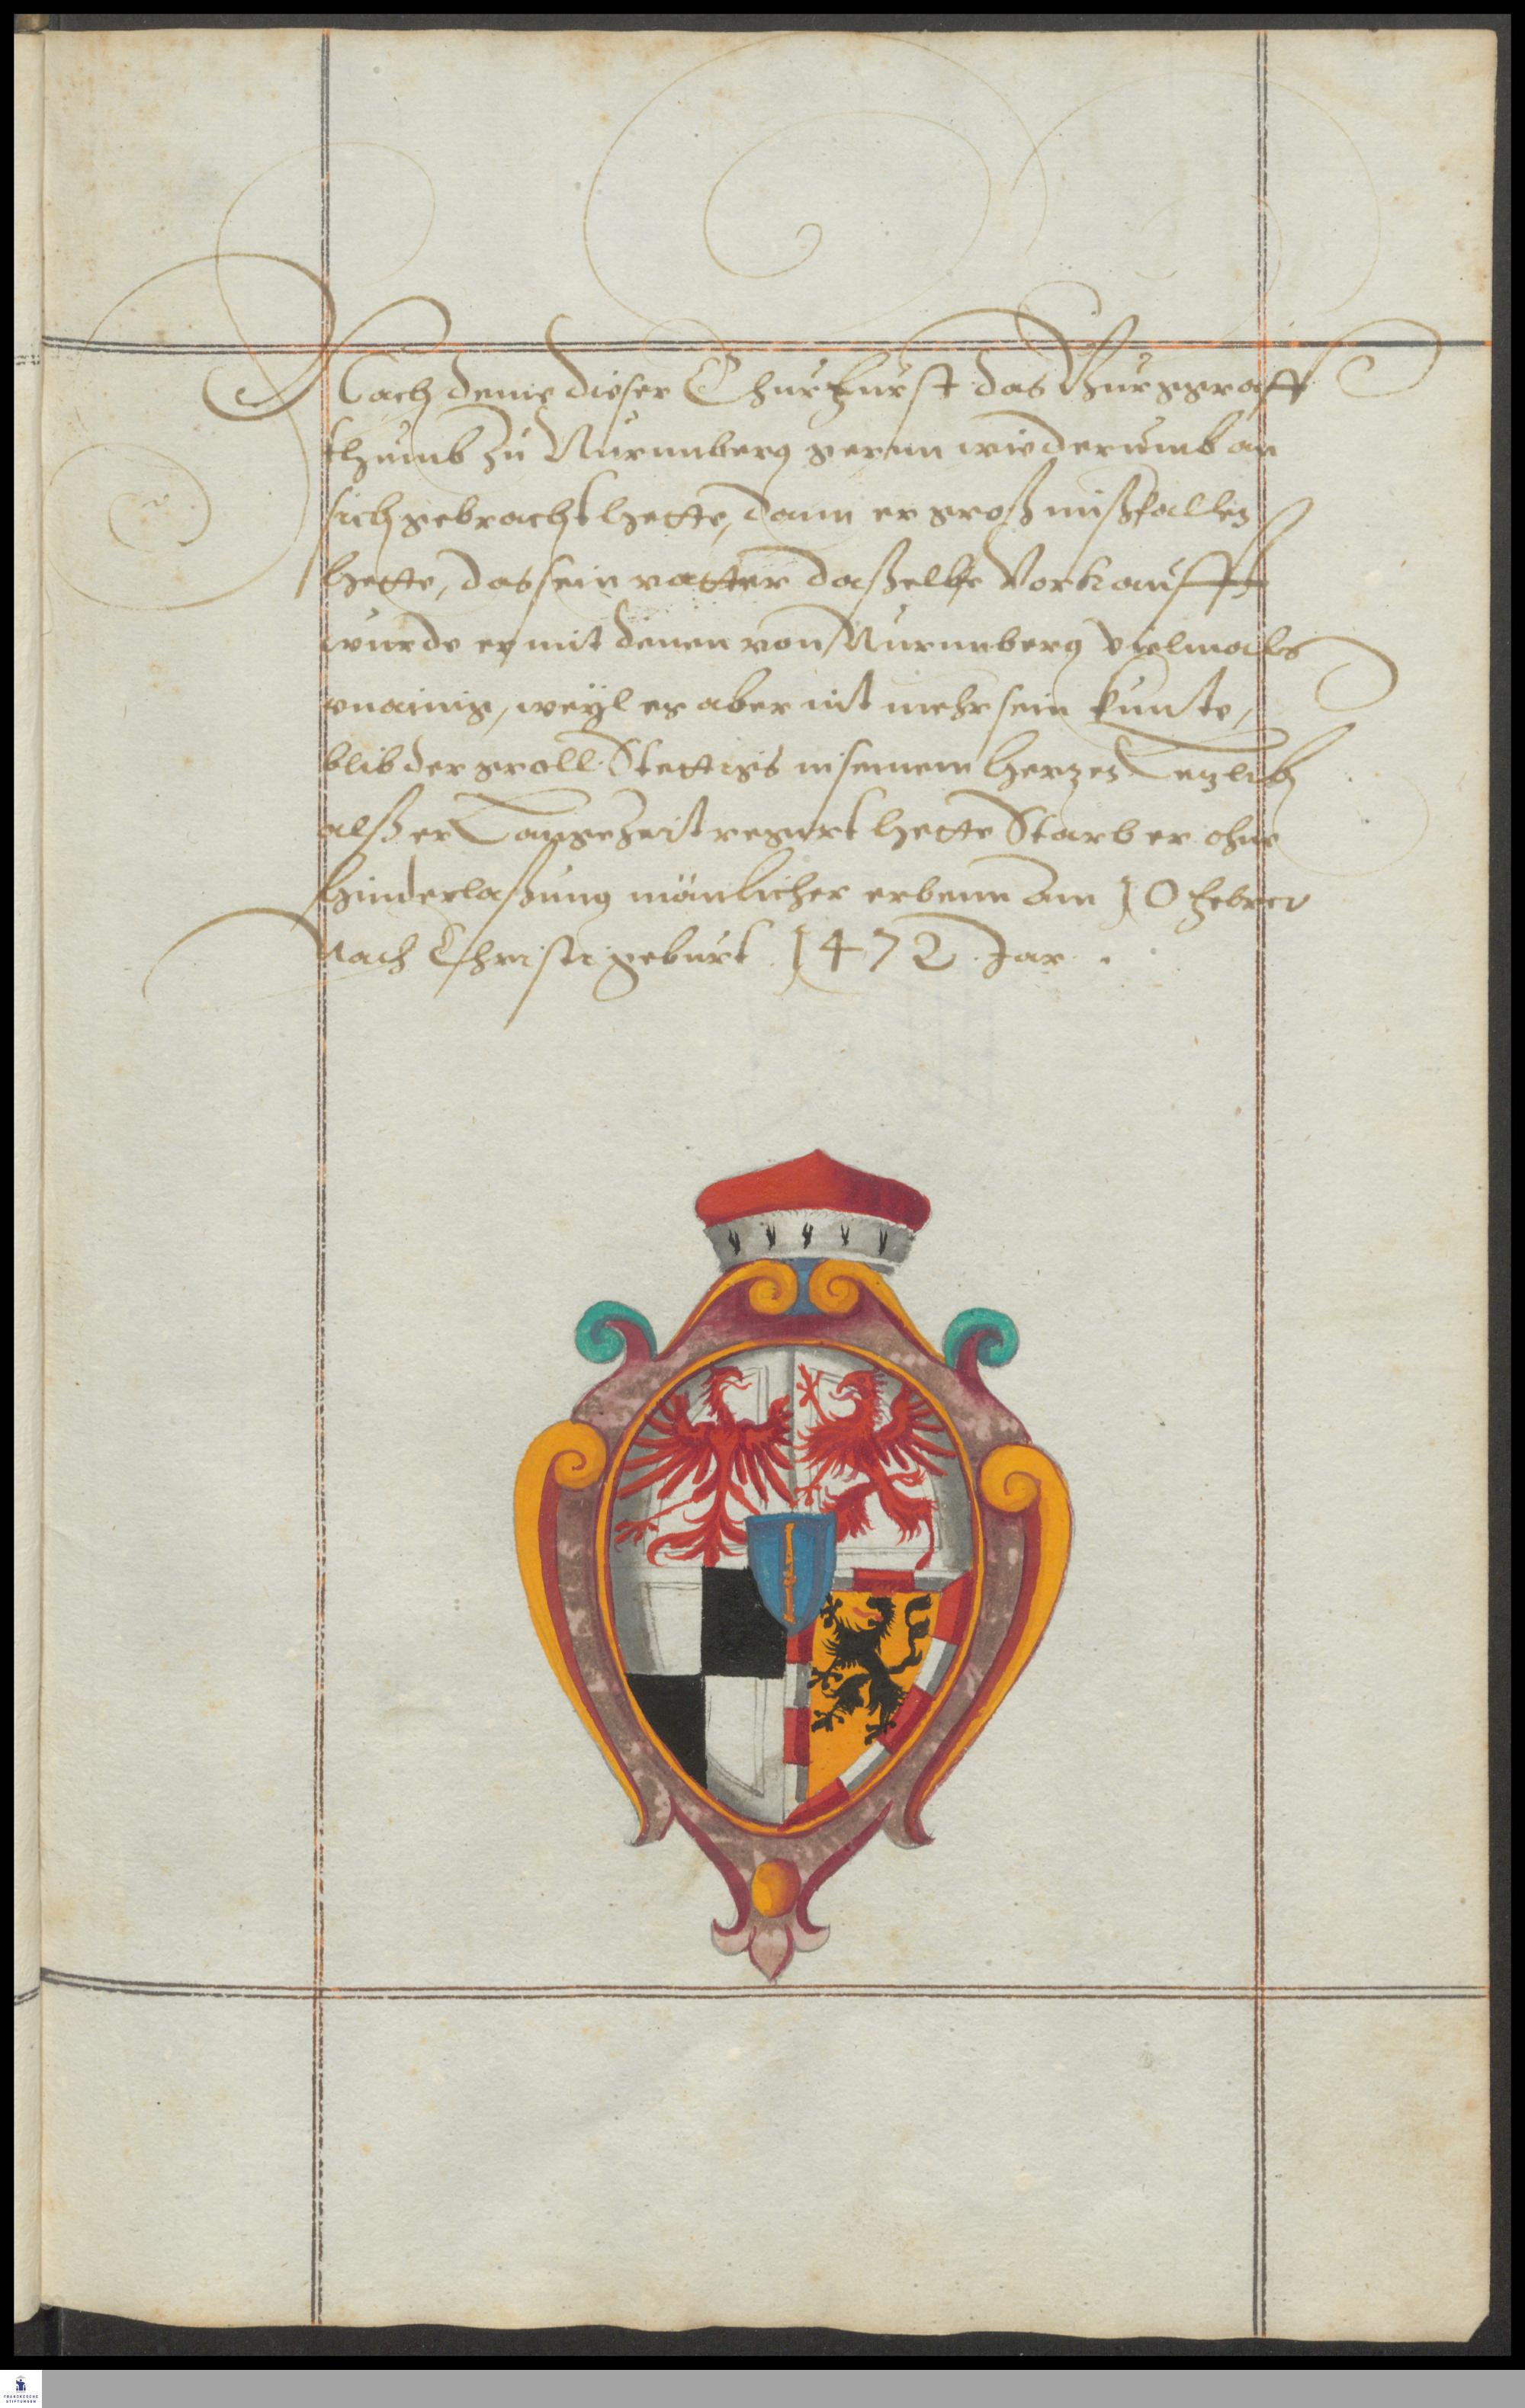 Nach deme dieser Churfurst das Burggraff
thumb zu Nurnnberg gernn wiederumb an
sich gebracht hette, dann er groß mißfallen
hette, das sein vatter daßelbe Vorkaufft
wurde er mit denen von Nurnnberg vielmals
vnainig, weyl es aber nit mehr sein kunte,
blib der groll Stettigs in seinem herzen Letzlich
alß er Lange zeit regirt hette Starb er ohne
hinderlaßung mänlicher erbenn am 10 Febrer
Nach Christi geburt 1472 Jar .
FRANCKESCHE
STIFTUNGEN